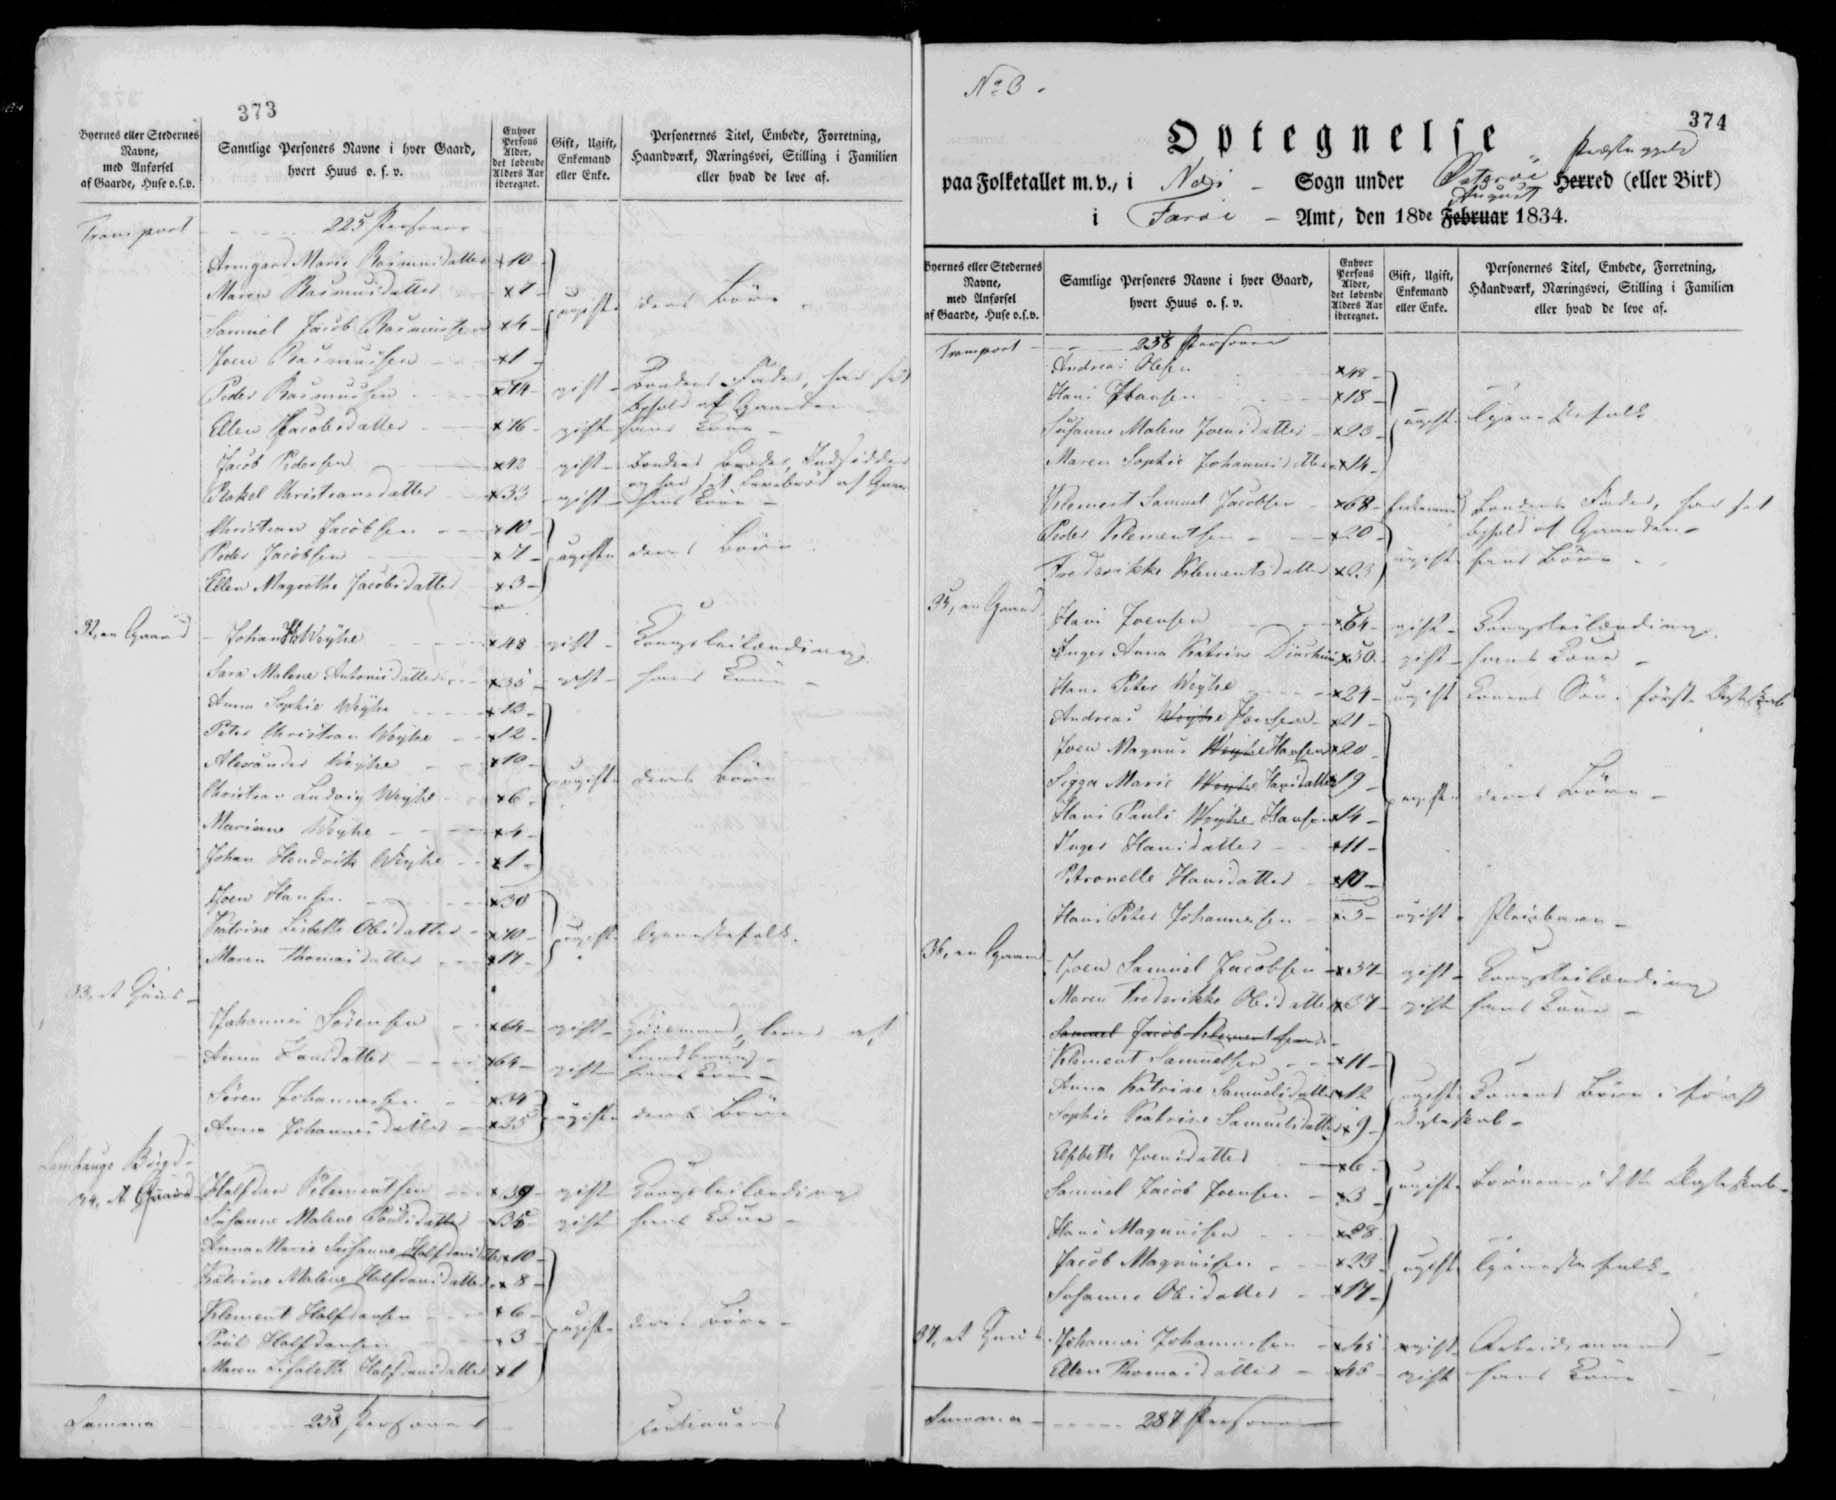 373
Byernes eller Stedernes Navne, med Anførsel af Gaarde, Huse o.s.v.
Samtlige Personers Navne i hver Gaard, hvert Huus o. s. v.
Enhver Persons Alder, det løbende Alders Aar iberegnet.
Gift, Ugift, Enkemand eller Enke.
Personernes Titel, Embede, Forretning, Haandværk, Næringsvei, Stilling i Familien eller hvad de leve af.
Transport - 225 Personer
Armgard Marie Rasmusdatter × 10 -
Maren Rasmusdatter × 7 - ugifte deres Börn
Samuel Jacob Rasmussen × 4 -
Joen Rasmussen × 1 -
Peder Rasmussen × 74 - gift - Bondens Fader, har sit
Ophold af Gaarden
Ellen Jacobsdatter × 76 - gift hans Kone -
Jacob Pedersen × 42 gift - Bondens Broder, Indsidder
og har sit Levebröd af
Rakel Christiansdatter × 33 gift - hans Kone -
Christian Jacobsen × 10 -
Peder Jacobsen × 7 - ugifte deres Börn
Ellen Magrethe Jacobsdatter × 3 -
32, en Gaard - Johan Weyhe × 48 gift - Kongsleilænding
Sara Malene × 35 - gift - hans Kone -
Anna Sophie Weyhe × 13 -
Peter Christian Weyhe × 12 -
Alexander Weyhe × 10 -
Christian Ludvig Weyhe × 6 - ugifte deres Börn
Mariane Weyhe × 4 -
Johan Hendrik Weyhe × 1 -
Joen Hansen × 30
Katrine Lisbeth Olesdatter × 40 - ugifte Tjenestefolk.
Maren Thomasdatter × 17 -
33, et Huus -
Johannes Sörensen × 64 - gift - Huusmand, lever af
Anna × 64 - gift - hans Kone -
Sören Johannesen × 34
Anna Johannesdatter × 35 ugifte deres Börn
34, Halfdan Klementsen × 39 - gift - Kongsleilænding
Susanne Malene Poulsdatter × 35 - gift hans Kone -
Anna Marie Susanne Halfdansdatter × 10 -
Katrine Malene Halfdansdatter × 8 -
Klement Halfdansen × 6 - ugifte deres Börn -
Poul Halfdansen × 3 -
Maren Lisabeth Halfdansdatter × 1
Summa - 258 Personer
No 3.
374
Optegnelse
paa Folketallet m. v., i Næs - Sogn under Österöe Præstegjeld Herred (eller Birk)
i Faröe - Amt, den 18de Februar August 1834.
Byernes eller Stedernes Navne, med Anførsel af Gaarde, Huse o.s.v.
Samtlige Personers Navne i hver Gaard, hvert Huus o. s. v.
Enhver Persons Alder, det løbende Alders Aar iberegnet.
Gift, Ugift, Enkemand eller Enke.
Personernes Titel, Embede, Forretning, Haandværk, Næringsvei, Stilling i Familien eller hvad de leve af.
Transport - 258 Personer
Andreas Olesen × 48 -
Hans Hansen × 18 -
Susanne Malene Joensdatter × 23 - ugifte Tjenestefolk
Maren Sophie Johannesdatter × 14 -
Klement Samuel Jacobsen × 68 - Enkemand Bondens Fader, har sit
Ophold af Gaarden -
Peder Klementsen × 20 -
Frederikke Klementsdatter × 23 ugifte hans Börn
35, en Gaard Hans Joensen × 64 - gift - Kongsleilænding
Inger Anna Katrine × 50 - gift - hans Kone -
Hans Peter Weyhe × 24 - ugift Konens Sön i förste Ægteskab
Andreas Weyhe Hansen × 21 -
Joen Magnus Weyhe Hansen × 20
Sigga Marie Weyhe Hansdatter × 19 -
Hans Pauli Weyhe Hansen × 14 - ugifte deres Börn -
Inger Hansdatter × 11 -
Petronelle Hansdatter × 10 -
Hans Peter Johannesen × 5 - ugift - Pleiebarn -
36, en Gaard Joen Samuel Jacobsen × 37 - gift - Kongsleilænding
Maren Frederikke Olesdatter × 37 - gift hans Kone -
Samuel Jacob Klementsen
Klement Samuelsen × 11 -
Anna Katrine Samuelsdatter × 12 ugifte Konens Börn i förste
Sophie Katrine Samuelsdatter × 9 - Ægteskab -
Elsbeth Joensdatter × 6 -
Samuel Jacob Joensen × 3 - ugifte Börnene i dette Ægteskab -
Hans Magnussen × 28
Jacob Magnussen × 23 ugifte Tjenestefolk -
Susanne Olesdatter × 17 -
37, et Huus Johannes Johannesen × 45 gift Arbeidsmand
Ellen Thomasdatter × 45 - gift hans Kone
Summa - 287 Personer